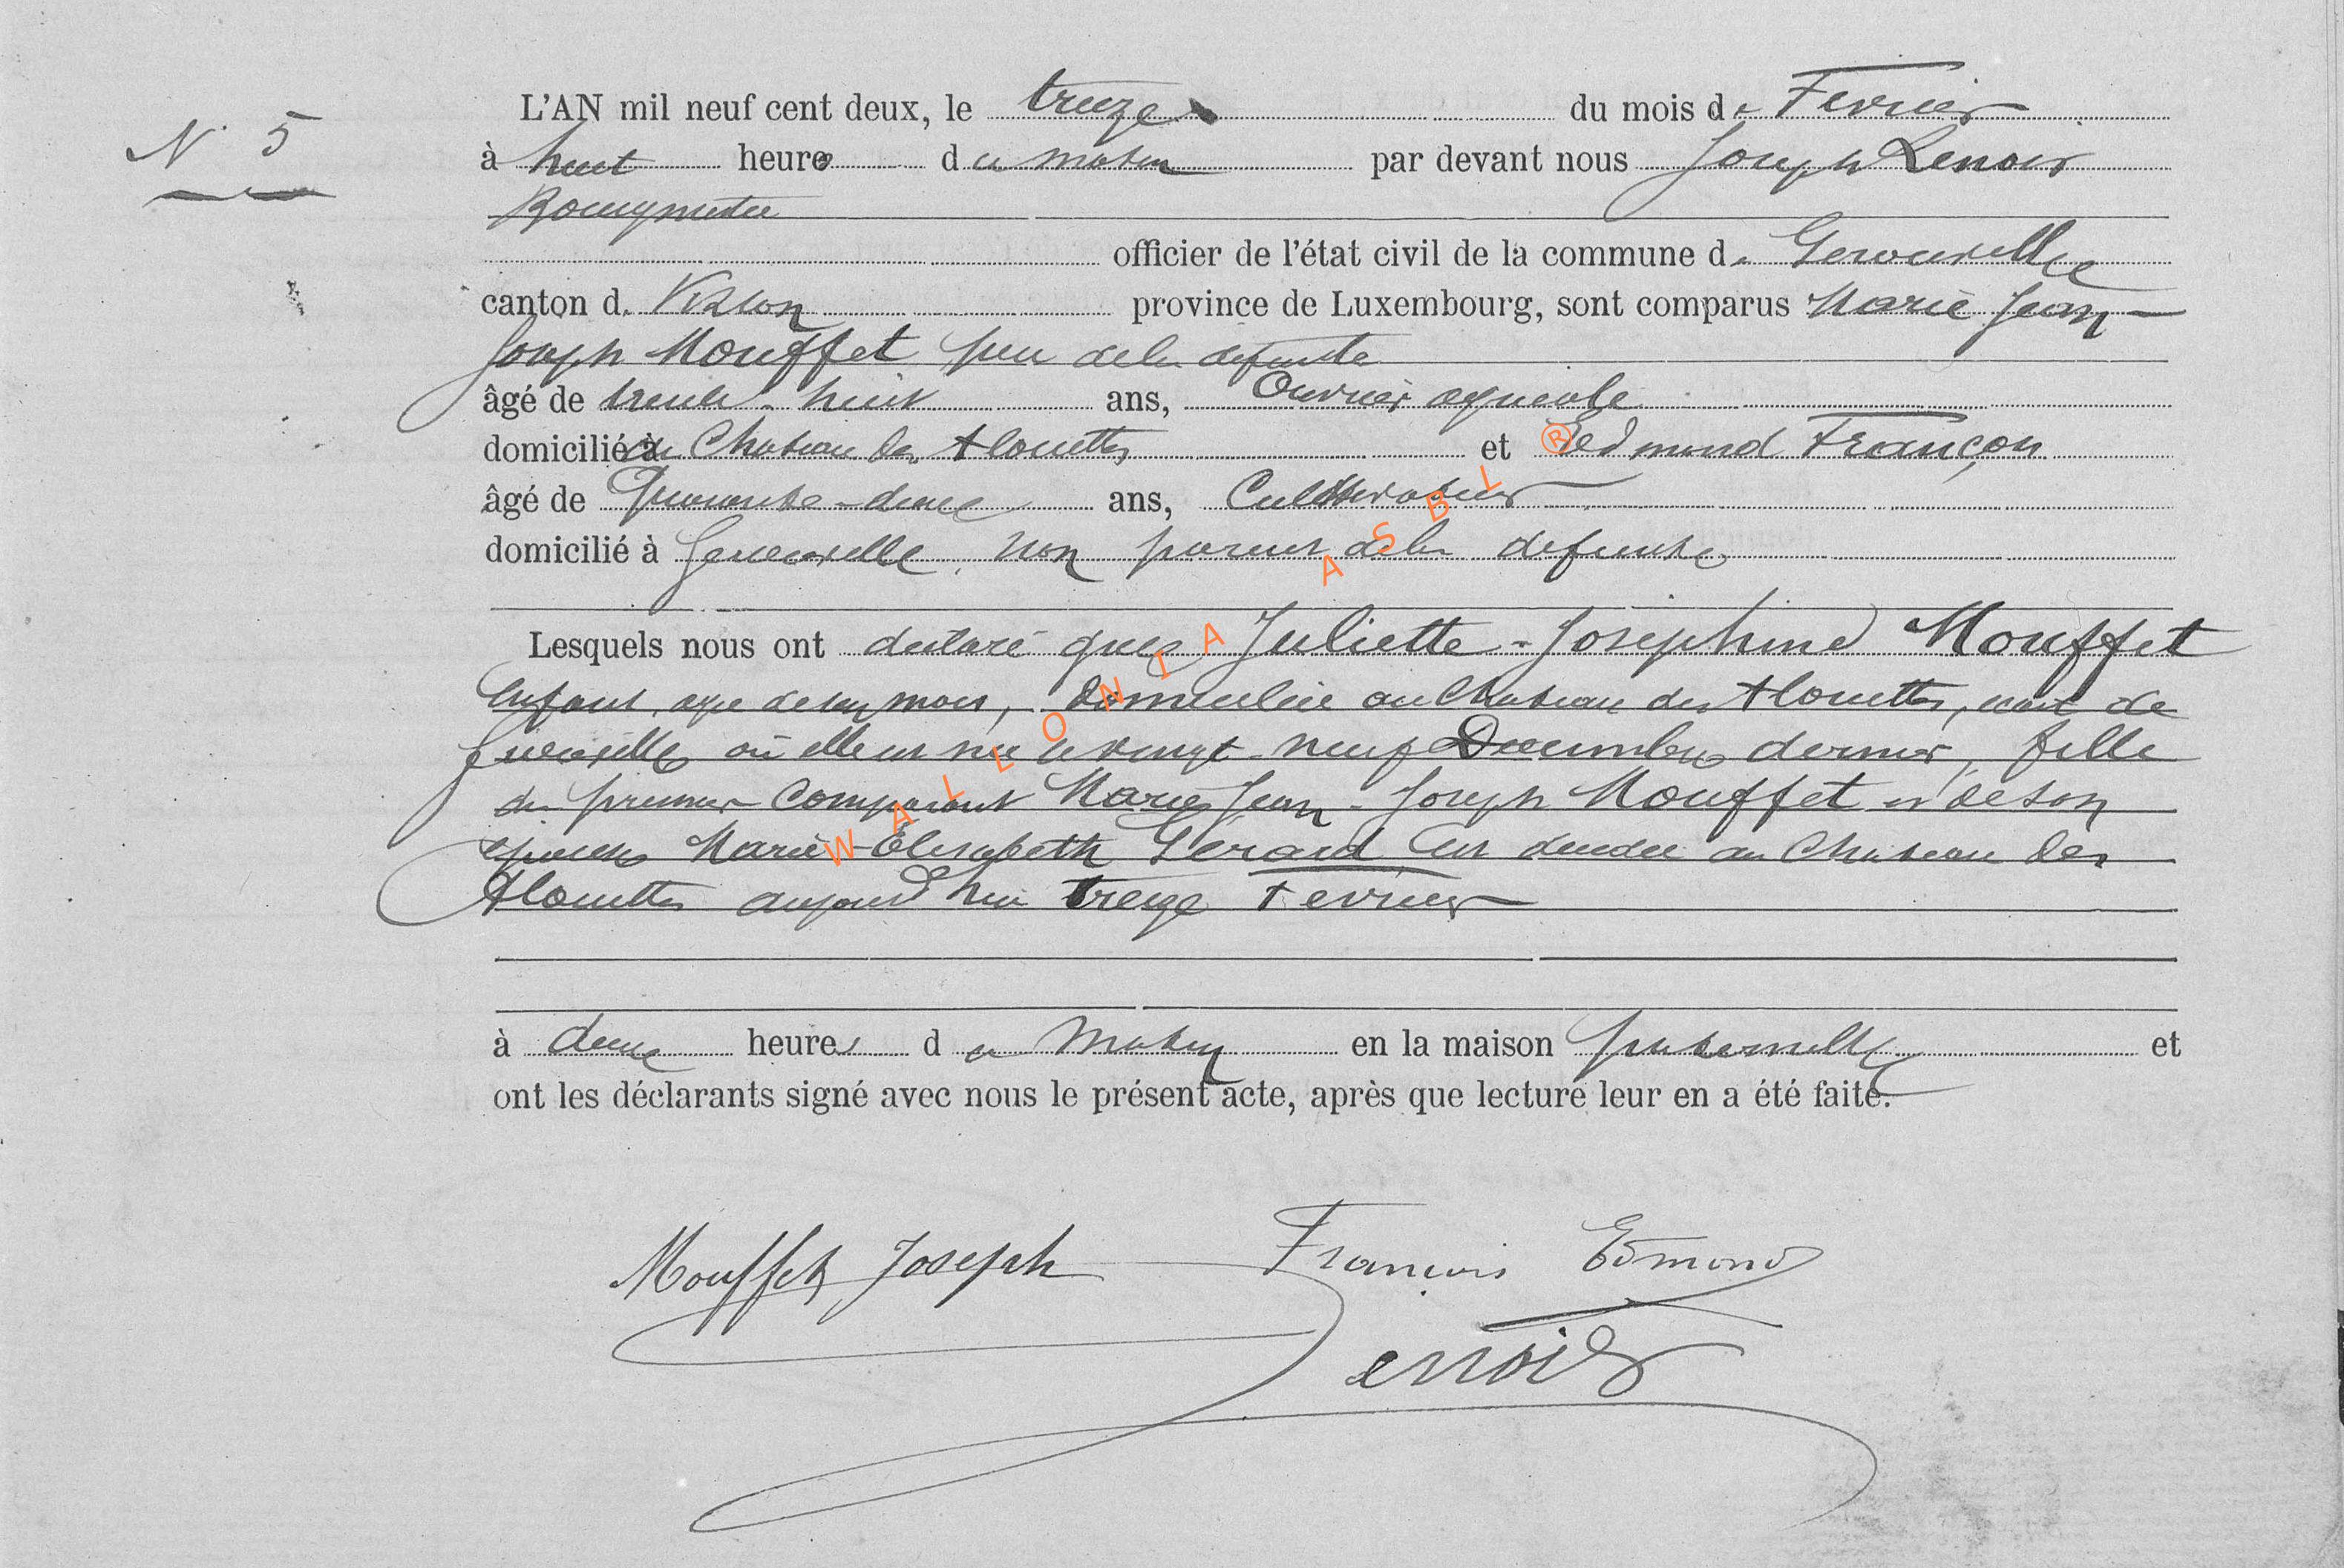 N° 5
L'AN mil neuf cent deux, le treize du mois de Fevrier
à huit heures du matin par devant nous Joseph Lenoir
Bourgmestre
officier de l'état civil de la commune de Gerouville
canton de Virton province de Luxembourg, sont comparus Marie Jean
Joseph Mouffet père de la défunte
âgé de trente-huit ans, Ouvrier agricole
domicilié à au Chateau des Alouettes et Edmond Françon
âgé de Quarante-deux ans, Cultivateur
domicilié à Gerouville, non parent de la defunte
Lesquels nous ont déclaré que Juliette-Joséphine Mouffet
Enfant, agée de un mois, domiciliée au Chateau des Alouettes, de
Gerouville où elle est née le vingt-neuf Decembre dernier, fille
du premier Comparant Marie Jean-Joseph Mouffet et de son
épouse Marie-Elisabeth Gerard Est décédée au Chateau des
Alouettes aujourd'hui treize Fevrier
à deux heures du matin en la maison paternelle et
ont les déclarants signé avec nous le présent acte, après que lecture leur en a été faite.
Mouffet Joseph François Edmond
Lenoir
WALLONIA ASBL ®